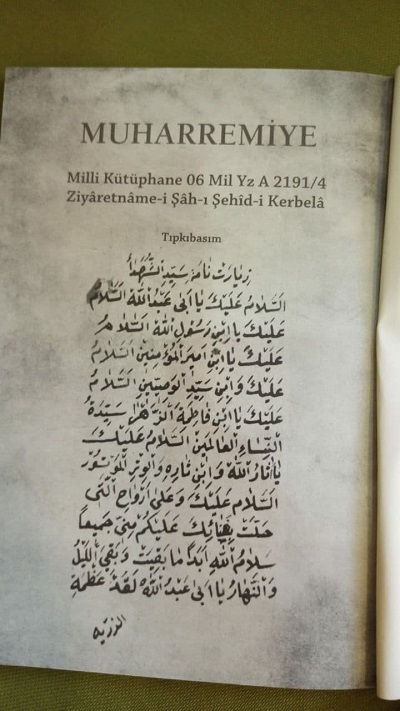 MUHARREMİYE
Milli Kütüphane 06 Mil Yz A 2191/4
Ziyâretnâme-i Şâh-ı Şehîd-i Kerbelâ
Tıpkıbasım
زیارت نامهٔ سَیّدالشُّهَدَا
اَلسَّلَامُ عَلَیْكَ یَا اَبٰی عَبْدِاللّٰهِ اَلسَّلَامُ
عَلَیْكَ یَا ابْنَ رَسُولِ اللّٰهِ اَلسَّلَامُ
عَلَیْكَ یَا ابْنَ اَمِیرِ الْمُؤْمِنِینَ اَلسَّلَامُ
عَلَیْكَ وَابْنَ سَیِّدِ الْوَصِیِّینَ اَلسَّلَامُ
عَلَیْكَ یَا ابْنَ فَاطِمَةَ الزَّهْرَا سَیِّدَةُ
النِّسَاءِ الْعَالَمِینَ اَلسَّلَامُ عَلَیْكَ
یَا ثَارُ اللّٰهِ وَابْنِ ثَارِهِ وَالْوِتْرِ الْمَوْتُورِ
اَلسَّلَامُ عَلَیْكَ وَعَلٰی اَرْوَاحِ الَّتٖی
حَلَّتْ بِفِنَائِكَ عَلَیْكُمْ مِنّٖی جَمِیعاً
سَلَامُ اللّٰهِ اَبَداً مَا بَقِیتُ وَبَقِیَ اللَّیْلُ
وَالنَّهَارُ یَا اَبٰی عَبْدُ اللّٰهِ لَقَدْ عَظُمَةِ
الرزیه